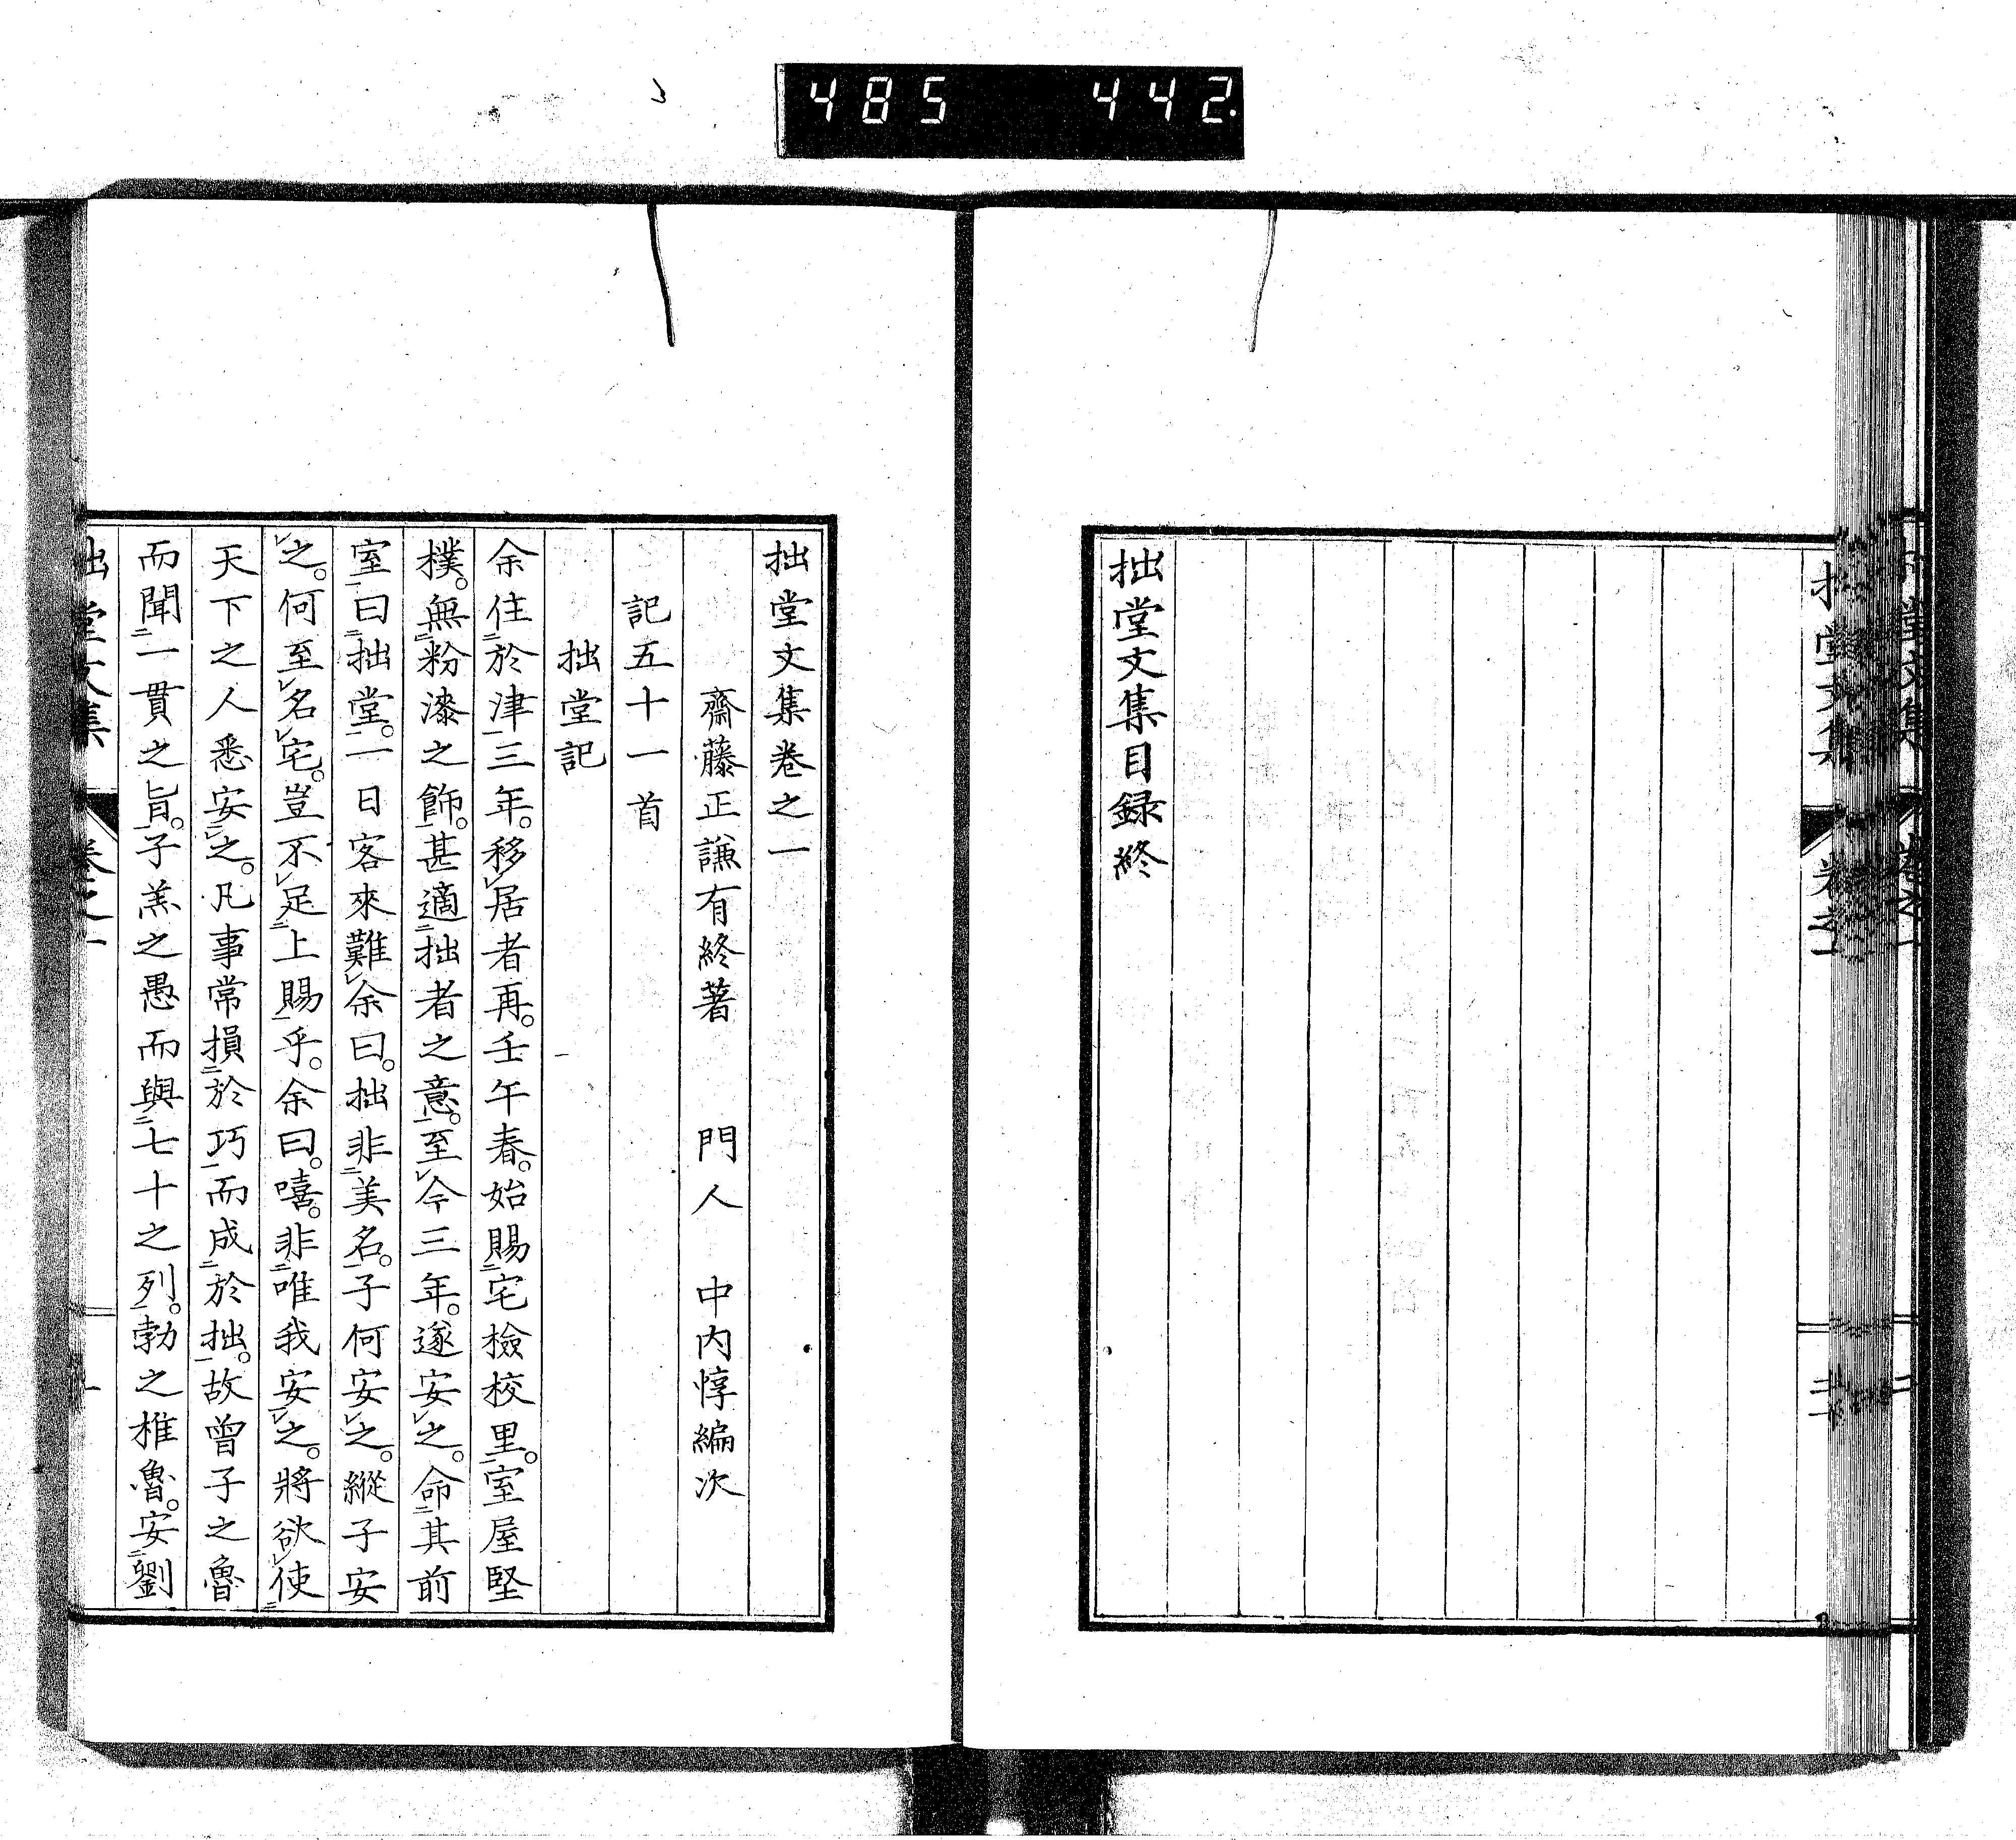 485 442.
拙堂文集目録終
拙堂文集卷之一
齋藤正謙有終著 門人 中内惇編次
記五十一首
拙堂記
余住於津三年。移居者再。壬午春。始賜宅檢校里。室屋堅
樸。無粉漆之飾。甚適拙者之意。至今三年。遂安之。命其前
室曰拙堂。一日客來難余曰。拙非美名。子何安之。縱子安
之。何至名宅。豈不足上賜乎。余曰。嘻。非唯我安之。將欲使
天下之人悉安之。凡事常損於巧而成於拙。故曾子之魯
而聞一貫之旨。子羔之愚而與七十之列。勃之椎魯。安劉
拙堂文集 卷之一